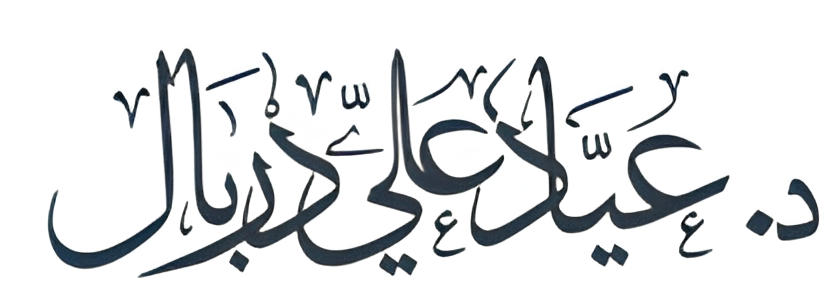 د. عيَّاد عليّ دْربال